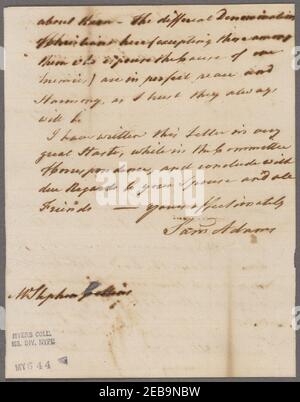 about them - The different Denominations
of Christians here (excepting those among
them who espouse the cause of our
Enemies) are in perfect peace and
Harmony, as I trust they always
will be
I have written this Letter in very
great Haste, while in the Committee
Correspondence, and conclude with
due Regards to your Spouse and all
Friends — yours affectionately
Sam Adams
Mr Stephen Collins
MYERS COLL.
MS. DIV. NYPL
MYG 44
alamy
Image ID: 2EB9NBW
www.alamy.com